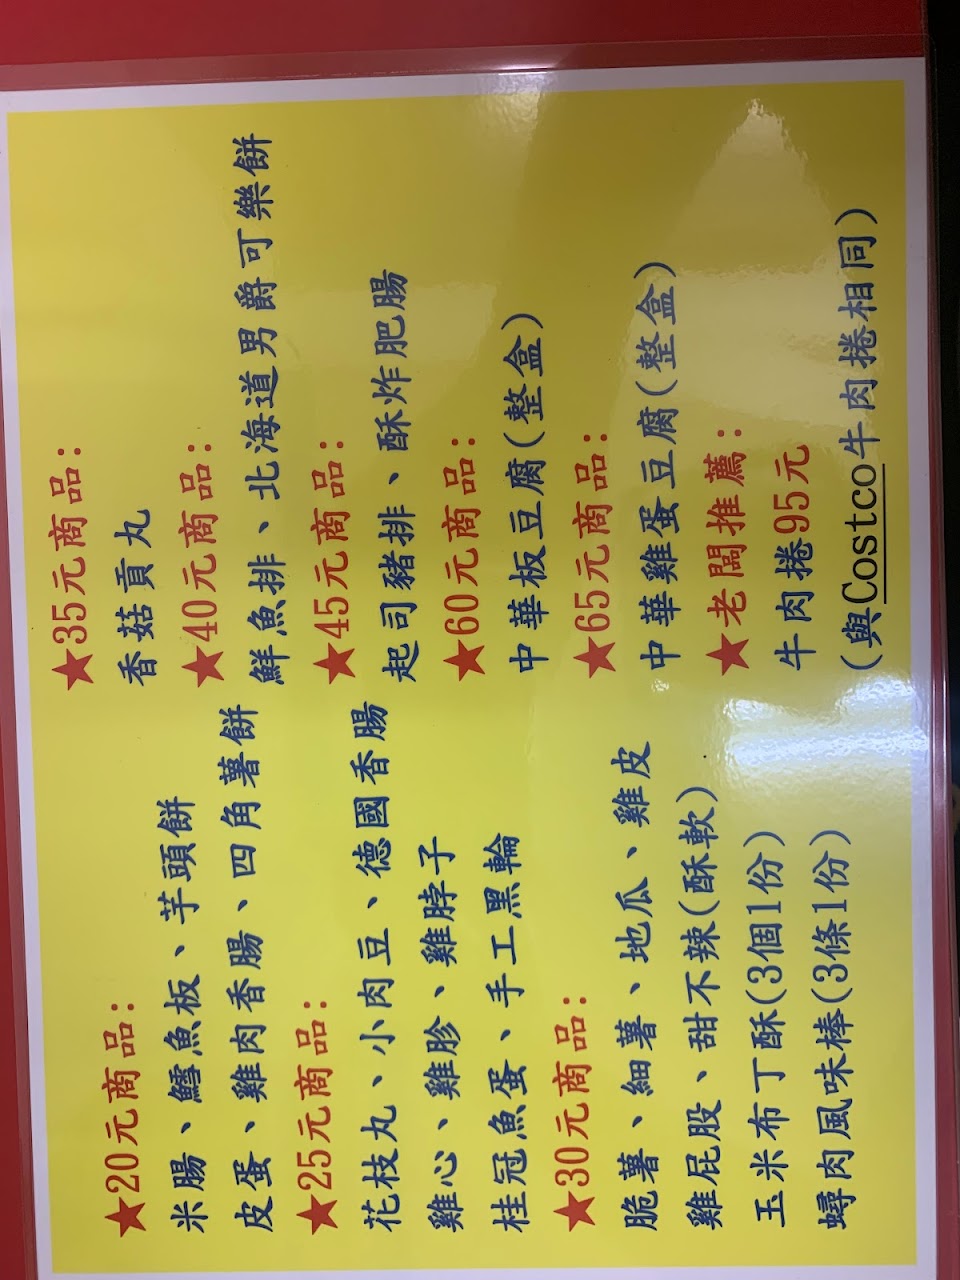 ★20元商品:
米腸、鱈魚板、芋頭餅
皮蛋、雞肉香腸、四角薯餅
★25元商品:
花枝丸、小肉豆、德國香腸
雞心、雞胗、雞脖子
桂冠魚蛋、手工黑輪
★30元商品:
脆薯、細薯、地瓜、雞皮
雞屁股、甜不辣(酥軟)
玉米布丁酥(3個1份)
蟳肉風味棒(3條1份)
★35元商品:
香菇貢丸
★40元商品:
鮮魚排、北海道男爵可樂餅
★45元商品:
起司豬排、酥炸肥腸
★60元商品:
中華板豆腐(整盒)
★65元商品:
中華雞蛋豆腐(整盒)
★老闆推薦:
牛肉捲95元
(與Costco牛肉捲相同)